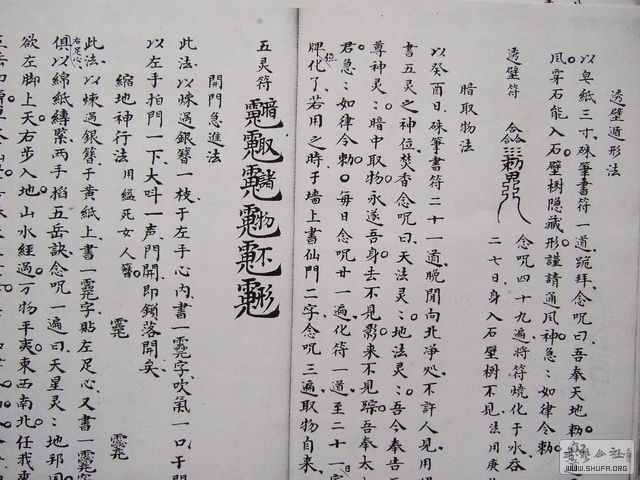 透壁遁形法
以皂紙三寸硃筆書符一道跪拜念咒曰吾奉天地勅
風穿石能入石壁樹隐藏形謹請通风神急：如律令勅
透壁符
念咒四十九遍将符燒化于水吞
二七日身入石壁樹不見法用庚
暗取物法
以癸酉日硃筆書符二十一道晚間向北凈処不許人見用
書五灵之神位焚香念咒曰天法灵：地法灵：吾今奉告
尊神灵：暗中取物永遂吾身去不見影来不見踪吾奉太
君急：如律令勅每日念咒廿一遍化符一道至二十一日
牌位化了若用之時于墙上書仙門二字念咒三遍取物自来
五灵符
暗取諸物不形
開門急進法
此法以煉過銀簪一枝于左手心内書一字吹氣一口于門
以左手拍門一下大叫一声門開即鎖落開矣
縮地神行法 用縊死女人簪
此法以煉過銀簪于黄紙上書一字貼左足心又書一字
右足心
俱以綿紙縛緊两手掐五岳訣念咒一遍曰天星灵：地
欲左脚上天右步入地山水經過万物平夷東西南北任我
WWW.SHUFA.ORG